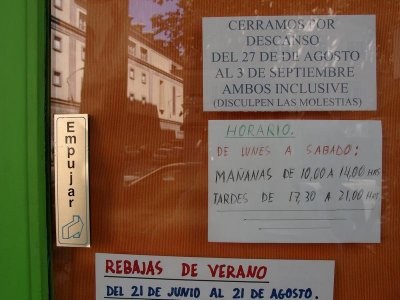 CERRAMOS POR
DESCANSO
DEL 27 DE DE AGOSTO
AL 3 DE SEPTIEMBRE
AMBOS INCLUSIVE
(DISCULPEN LAS MOLESTIAS)
Empujar
HORARIO.
DE LUNES A SABADO:
MAÑANAS DE 10,00 A 14,00 HRS
TARDES DE 17,30 A 21,00 HRS
REBAJAS DE VERANO
DEL 21 DE JUNIO AL 21 DE AGOSTO.